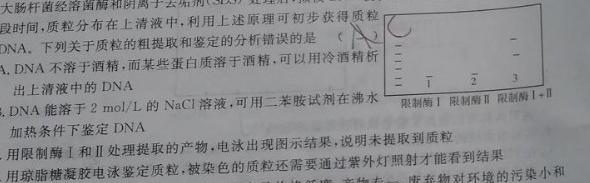 大肠杆菌经溶菌酶和阴离子去垢剂(SDS)处理后
段时间,质粒分布在上清液中,利用上述原理可初步获得质粒
DNA。下列关于质粒的粗提取和鉴定的分析错误的是 ( A )
A. DNA 不溶于酒精,而某些蛋白质溶于酒精,可以用冷酒精析
出上清液中的 DNA
B. DNA 能溶于 2 mol/L 的 NaCl 溶液,可用二苯胺试剂在沸水
加热条件下鉴定 DNA
用限制酶Ⅰ和Ⅱ处理提取的产物,电泳出现图示结果,说明未提取到质粒
用琼脂糖凝胶电泳鉴定质粒,被染色的质粒还需要通过紫外灯照射才能看到结果
废弃物对环境的污染小和
1 2 3
限制酶Ⅰ 限制酶Ⅱ 限制酶Ⅰ+Ⅱ